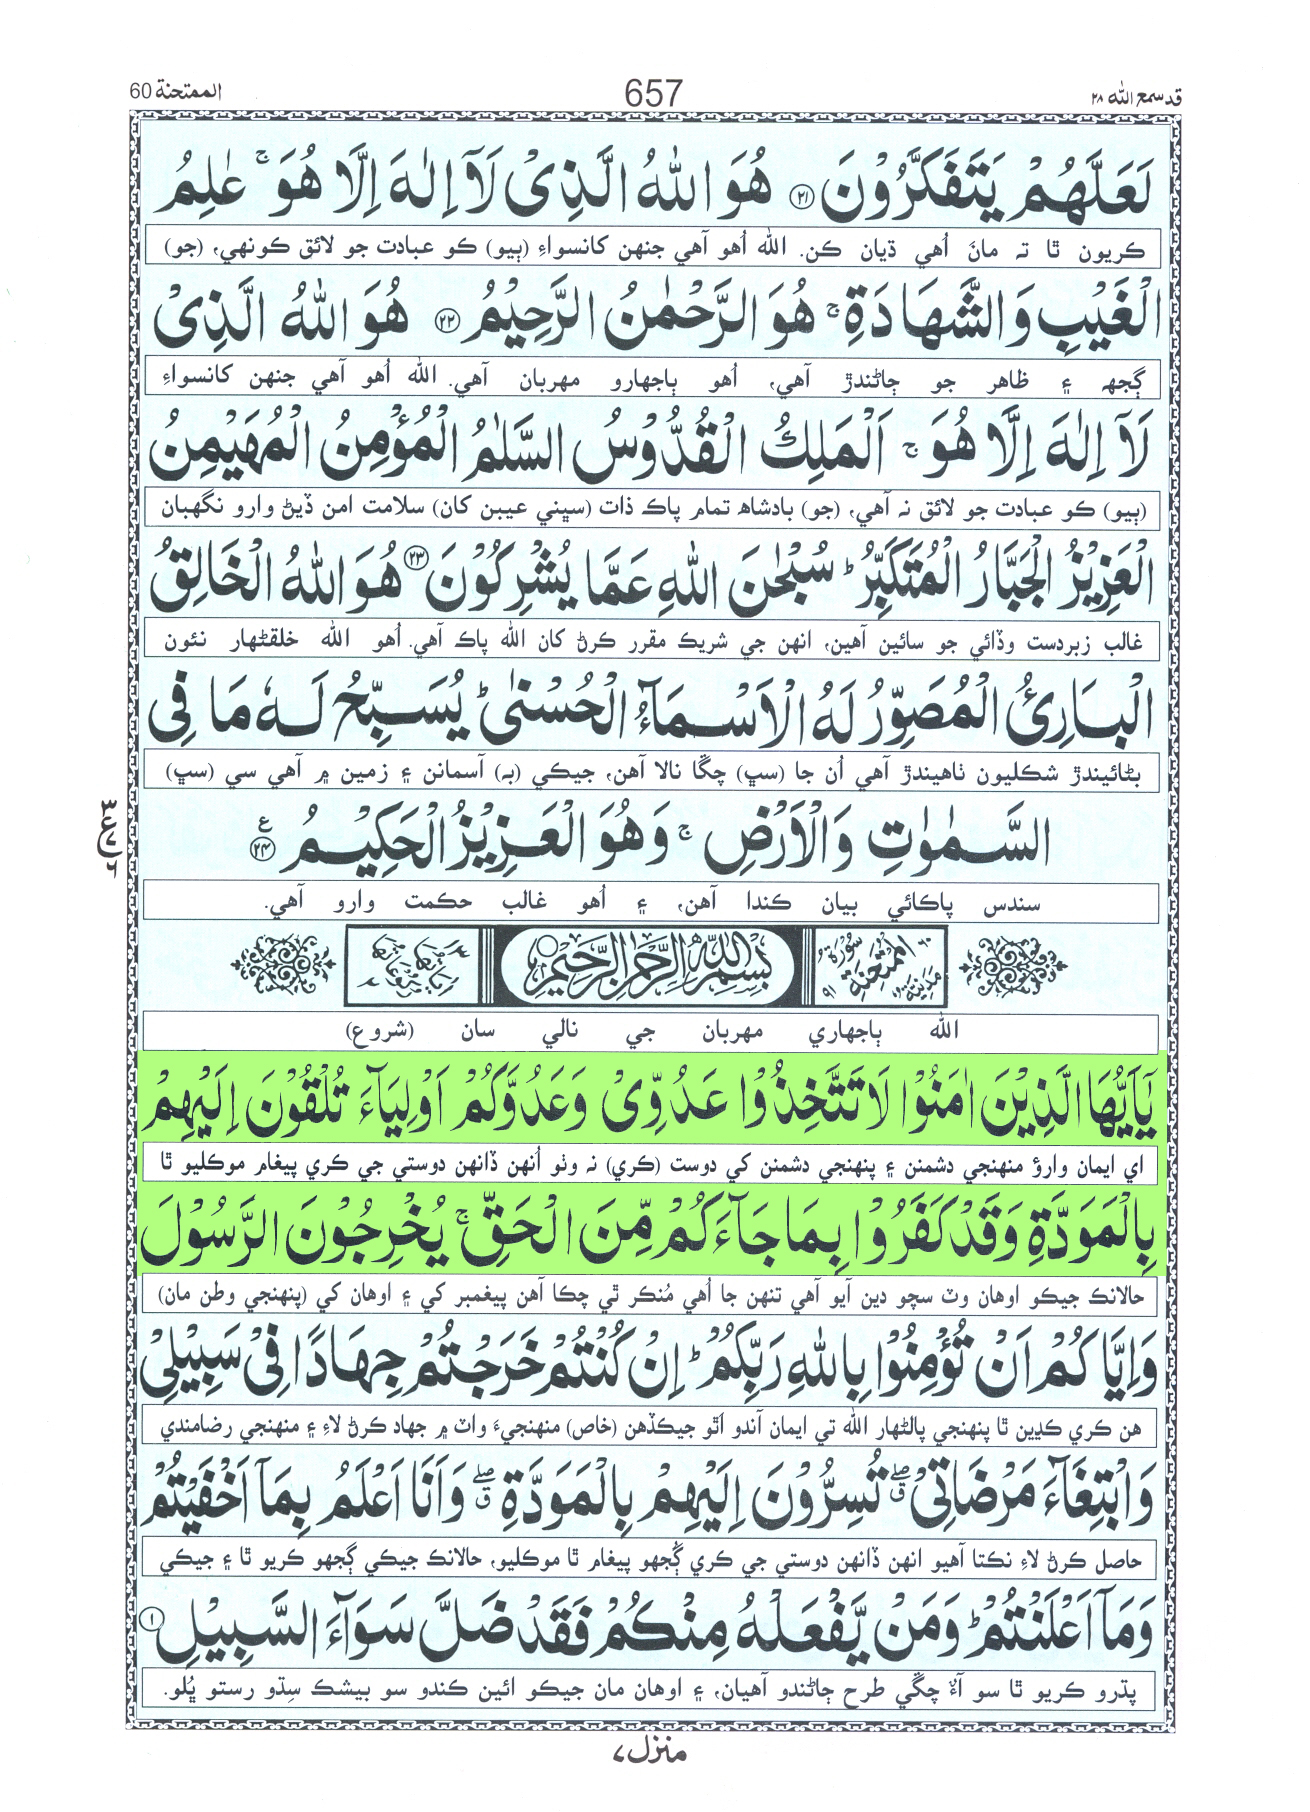 قد سمع الله ٢٨
657
الممتحنة 60
لَعَلَّهُمْ يَتَفَكَّرُوْنَ ﴿٢١﴾ هُوَ اللّٰهُ الَّذِىْ لَآ اِلٰهَ اِلَّا هُوَ ۚ عٰلِمُ
ڪريون ٿا ته مانَ اُهي ڌيان ڪن. الله اُهو آهي جنهن کانسواءِ (ٻيو) ڪو عبادت جو لائق ڪونهي، (جو)
الْغَيْبِ وَالشَّهَادَةِ ۚ هُوَ الرَّحْمٰنُ الرَّحِيْمُ ﴿٢٢﴾ هُوَ اللّٰهُ الَّذِىْ
ڳجهه ۽ ظاهر جو ڄاڻندڙ آهي، اُهو ٻاجهارو مهربان آهي. الله اُهو آهي جنهن کانسواءِ
لَآ اِلٰهَ اِلَّا هُوَ ۚ اَلْمَلِكُ الْقُدُّوْسُ السَّلٰمُ الْمُؤْمِنُ الْمُهَيْمِنُ
(ٻيو) ڪو عبادت جو لائق نه آهي، (جو) بادشاهه تمام پاڪ ذات (سڀني عيبن کان) سلامت امن ڏيڻ وارو نگهبان
الْعَزِيْزُ الْجَبَّارُ الْمُتَكَبِّرُ ؕ سُبْحٰنَ اللّٰهِ عَمَّا يُشْرِكُوْنَ ﴿٢٣﴾ هُوَ اللّٰهُ الْخَالِقُ
غالب زبردست وڏائي جو سائين آهين، انهن جي شريڪ مقرر ڪرڻ کان الله پاڪ آهي. اُهو الله خلقڻهار نئون
الْبَارِئُ الْمُصَوِّرُ لَهُ الْاَسْمَآءُ الْحُسْنٰى ؕ يُسَبِّحُ لَهٗ مَا فِى
بڻائيندڙ شڪليون ٺاهيندڙ آهي اُن جا (سڀ) چڱا نالا آهن، جيڪي (به) آسمانن ۽ زمين ۾ آهي سي (سڀ)
السَّمٰوٰتِ وَالْاَرْضِ ۚ وَهُوَ الْعَزِيْزُ الْحَكِيْمُ ﴿٢٤﴾ ع
سندس پاڪائي بيان ڪندا آهن، ۽ اُهو غالب حڪمت وارو آهي.
سُوْرَةُ الْمُمْتَحِنَةِ مَدَنِيَّةٌ
بِسْمِ اللّٰهِ الرَّحْمٰنِ الرَّحِيْمِ
الله ٻاجهاري مهربان جي نالي سان (شروع)
يٰٓاَيُّهَا الَّذِيْنَ اٰمَنُوْا لَا تَتَّخِذُوْا عَدُوِّىْ وَعَدُوَّكُمْ اَوْلِيَآءَ تُلْقُوْنَ اِلَيْهِمْ
اي ايمان وارؤ منهنجي دشمنن ۽ پنهنجي دشمنن کي دوست (ڪري) نه وٺو اُنهن ڏانهن دوستي جي ڪري پيغام موڪليو ٿا
بِالْمَوَدَّةِ وَقَدْ كَفَرُوْا بِمَا جَآءَكُمْ مِّنَ الْحَقِّ ۚ يُخْرِجُوْنَ الرَّسُوْلَ
حالانڪ جيڪو اوهان وٽ سچو دين آيو آهي تنهن جا اُهي مُنڪر ٿي چڪا آهن پيغمبر کي ۽ اوهان کي (پنهنجي وطن مان)
وَاِيَّاكُمْ اَنْ تُؤْمِنُوْا بِاللّٰهِ رَبِّكُمْ ؕ اِنْ كُنْتُمْ خَرَجْتُمْ جِهَادًا فِىْ سَبِيْلِىْ
هن ڪري ڪڍين ٿا پنهنجي پالڻهار الله تي ايمان آندو اٿو جيڪڏهن (خاص) منهنجيءَ واٽ ۾ جهاد ڪرڻ لاءِ ۽ منهنجي رضامندي
وَابْتِغَآءَ مَرْضَاتِىْ ۖ تُسِرُّوْنَ اِلَيْهِمْ بِالْمَوَدَّةِ ۖ وَاَنَا اَعْلَمُ بِمَآ اَخْفَيْتُمْ
حاصل ڪرڻ لاءِ نڪتا آهيو انهن ڏانهن دوستي جي ڪري ڳجهو پيغام ٿا موڪليو، حالانڪ جيڪي ڳجهو ڪريو ٿا ۽ جيڪي
وَمَآ اَعْلَنْتُمْ ؕ وَمَنْ يَّفْعَلْهُ مِنْكُمْ فَقَدْ ضَلَّ سَوَآءَ السَّبِيْلِ ﴿١﴾
پڌرو ڪريو ٿا سو آءٌ چڱي طرح ڄاڻندو آهيان، ۽ اوهان مان جيڪو ائين ڪندو سو بيشڪ سِڌو رستو ڀُلو.
منزل ٧